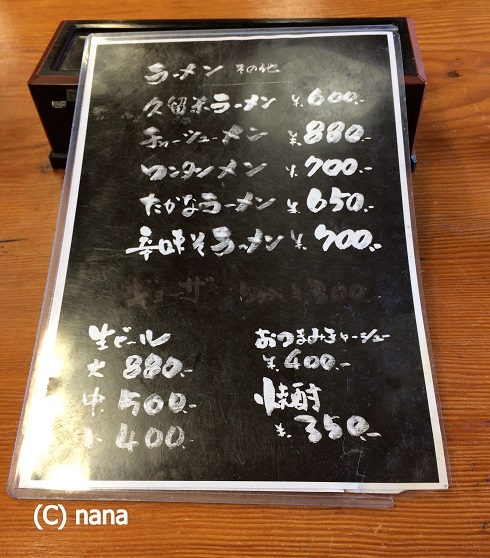 ラーメン その他
久留米ラーメン ¥600.-
チャーシューメン ¥880.-
ワンタンメン ¥700.-
たかなラーメン ¥650.-
辛味そラーメン ¥700.-
ギョーザ 5ヶ ¥300
生ビール
大 880.-
中 500.-
小 400.
おつまみチャーシュー
¥400.-
焼酎
¥350.-
(C) nana